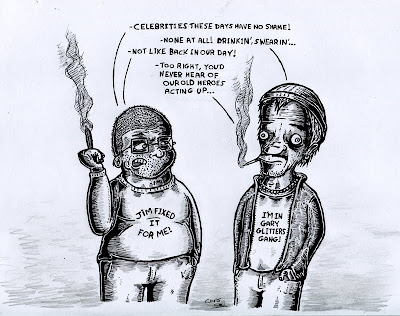 -CELEBRITIES THESE DAYS HAVE NO SHAME!
-NONE AT ALL! DRINKIN', SWEARIN'...
-NOT LIKE BACK IN OUR DAY!
-TOO RIGHT, YOU'D
NEVER HEAR OF
OUR OLD HEROES
ACTING UP...
JIM FIXED
IT
FOR ME!
I'M IN
GARY
GLITTERS
GANG!